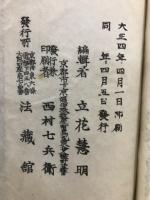 大正四年四月一日印刷
同 年四月五日發行
編輯者 立花慧明
發行兼印刷者 西村七兵衛
發行所 法藏館